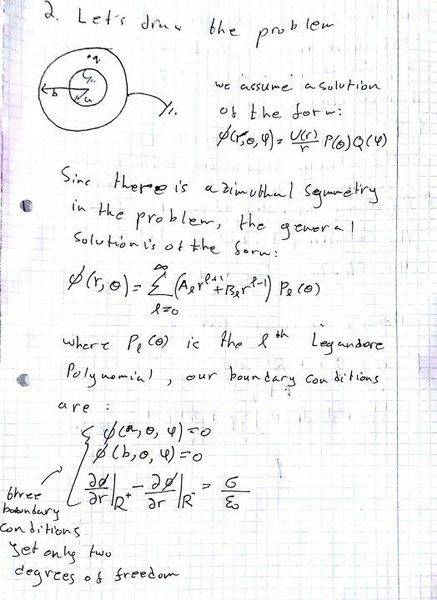 2. Let's draw the problem
q
b
a
we assume a solution
of the form:
ϕ(r,θ,φ) = U(r)/r P(θ)Q(φ)
Sinc there is azimuthal symmetry
in the problem, the general
solution is of the form:
ϕ(r,θ) = ∑_{l=0}^{∞} (A_l r^{l+1} + B_l r^{l-1}) P_l(θ)
where P_l(θ) is the l^th Legandore
Polynomial, our boundary conditions
are :
ϕ(a,θ,φ)=0
ϕ(b,θ,φ)=0
∂ϕ/∂r|R⁺ - ∂ϕ/∂r|R⁻ = σ/ε₀
three
boundary
conditions
yet only two
degrees of freedom